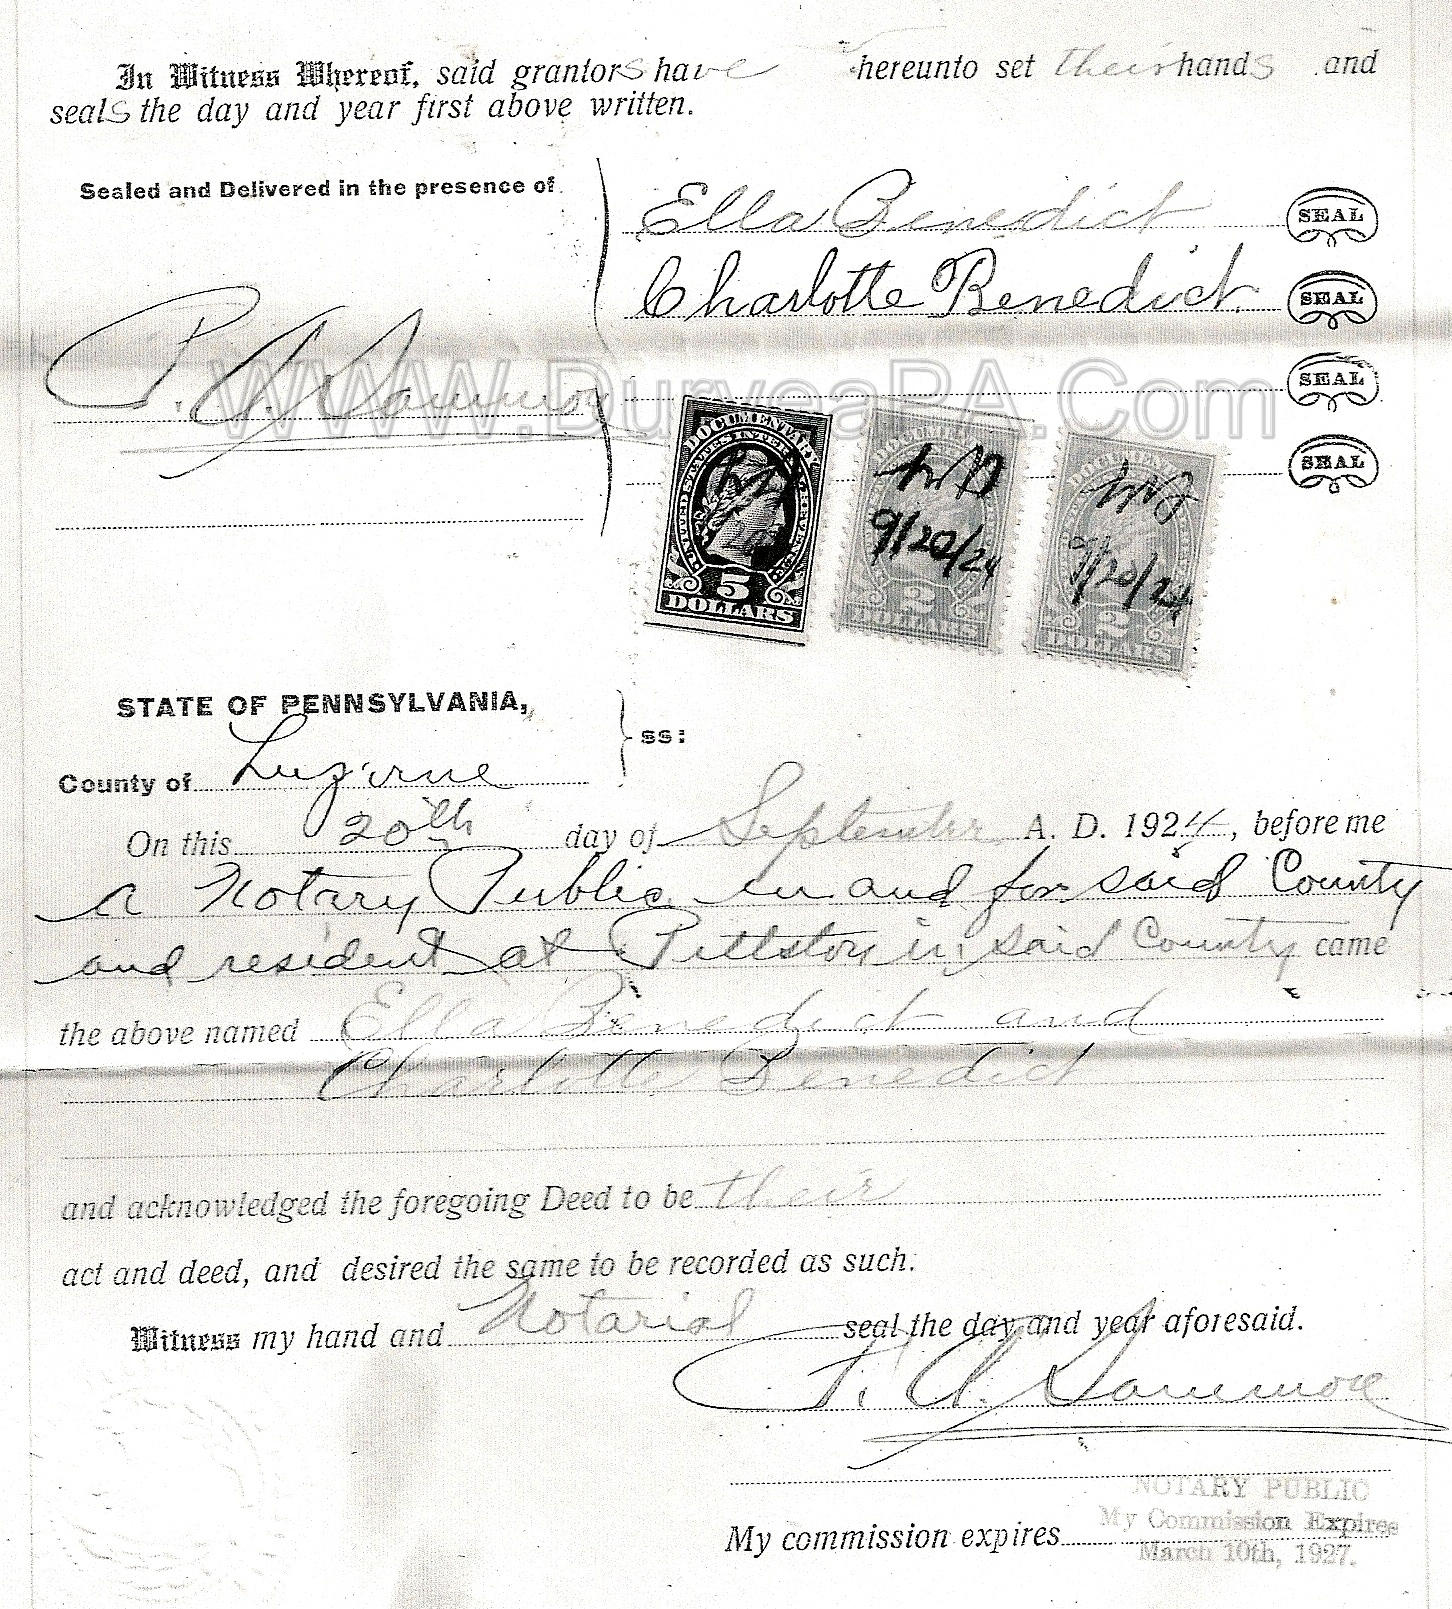 In Witness Whereof, said grantors have hereunto set their hands and
seals the day and year first above written.
Sealed and Delivered in the presence of
Ella Benedict SEAL
Charlotte Benedict. SEAL
P. A. Sammon SEAL
WWW.DuryeaPA.Com
SEAL
DOCUMENTARY
5
DOLLARS
DOCUMENTARY
9/20/24
2
DOLLARS
DOCUMENTARY
9/20/24
2
DOLLARS
STATE OF PENNSYLVANIA,
ss:
County of Luzerne
On this 20th day of September A. D. 1924, before me
a Notary Public in and for said County
and resident at Pittston in said County came
the above named Ella Benedict and
Charlotte Benedict
and acknowledged the foregoing Deed to be their
act and deed, and desired the same to be recorded as such.
Witness my hand and Notarial seal the day and year aforesaid.
P. A. Sammon
NOTARY PUBLIC
My commission expires My Commission Expires
March 10th, 1927.